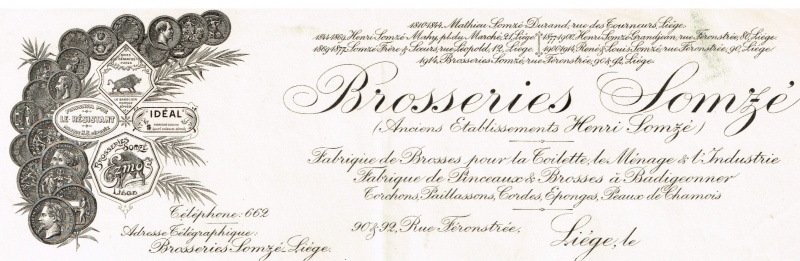 1810-1844. Mathieu Somzé-Durand, rue des Tourneurs, Liège.
1844-1869. Henri Somzé-Mahy, pl. du Marché, 21, Liège
1877-1900. Henri Somzé-Grandjean, rue Féronstrée, 86, Liège.
1869-1877. Somzé Frère & Sœurs, rue Léopold, 12, Liège
1900-1914. René & Louis Somzé, rue Féronstrée, 90, Liège.
1914. Brosseries Somzé, rue Féronstrée, 90 & 92, Liège.
Brosseries Somzé
(Anciens Etablissements Henri Somzé)
Fabrique de Brosses pour la Toilette, le Ménage & l'Industrie
Fabrique de Pinceaux & Brosses à Badigeonner
Torchons, Paillassons, Cordes, Eponges, Peaux de Chamois
90 & 92, Rue Féronstrée.
Liège, le
LE SANGLIER
LE RÉSISTANT
IDÉAL
BROSSERIES SOMZÉ
Ezmos
LIÉGE
Téléphone: 662
Adresse Télégraphique:
Brosseries-Somzé-Liège.